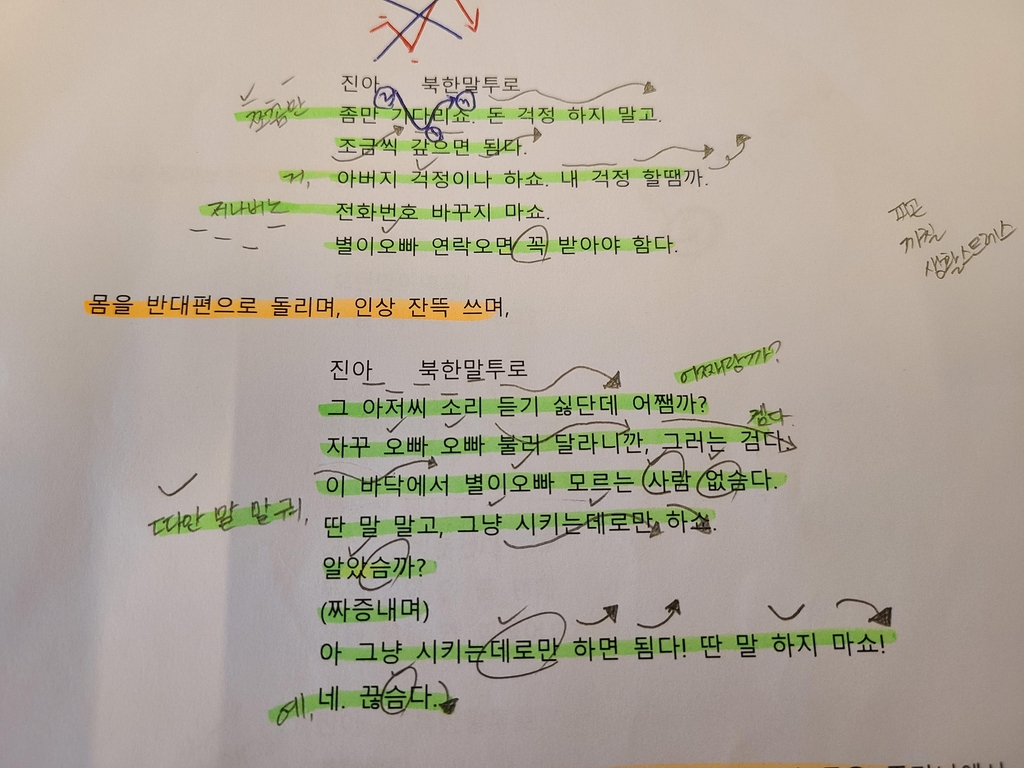 진아 북한말투로
쪼꼼만 좀만 기다리쇼. 돈 걱정 하지 말고.
조금씩 갚으면 됨다.
거, 아버지 걱정이나 하쇼. 내 걱정 할땜까.
저나버노 전화번호 바꾸지 마쇼.
별이오빠 연락오면 꼭 받아야 함다.
피곤
까칠
생활스트레스
몸을 반대편으로 돌리며, 인상 잔뜩 쓰며,
진아 북한말투로
어째랑까?
그 아저씨 소리 듣기 싫단데 어쨈까?
겜다.
자꾸 오빠 오빠 불러 달라니깐, 그러는 검다.
이 바닥에서 별이오빠 모르는 사람 없슴다.
따만 말 말구, 딴 말 말고, 그냥 시키는데로만 하쇼.
알았슴까?
(짜증내며)
아 그냥 시키는데로만 하면 됨다! 딴 말 하지 마쇼!
예, 네. 끊슴다.